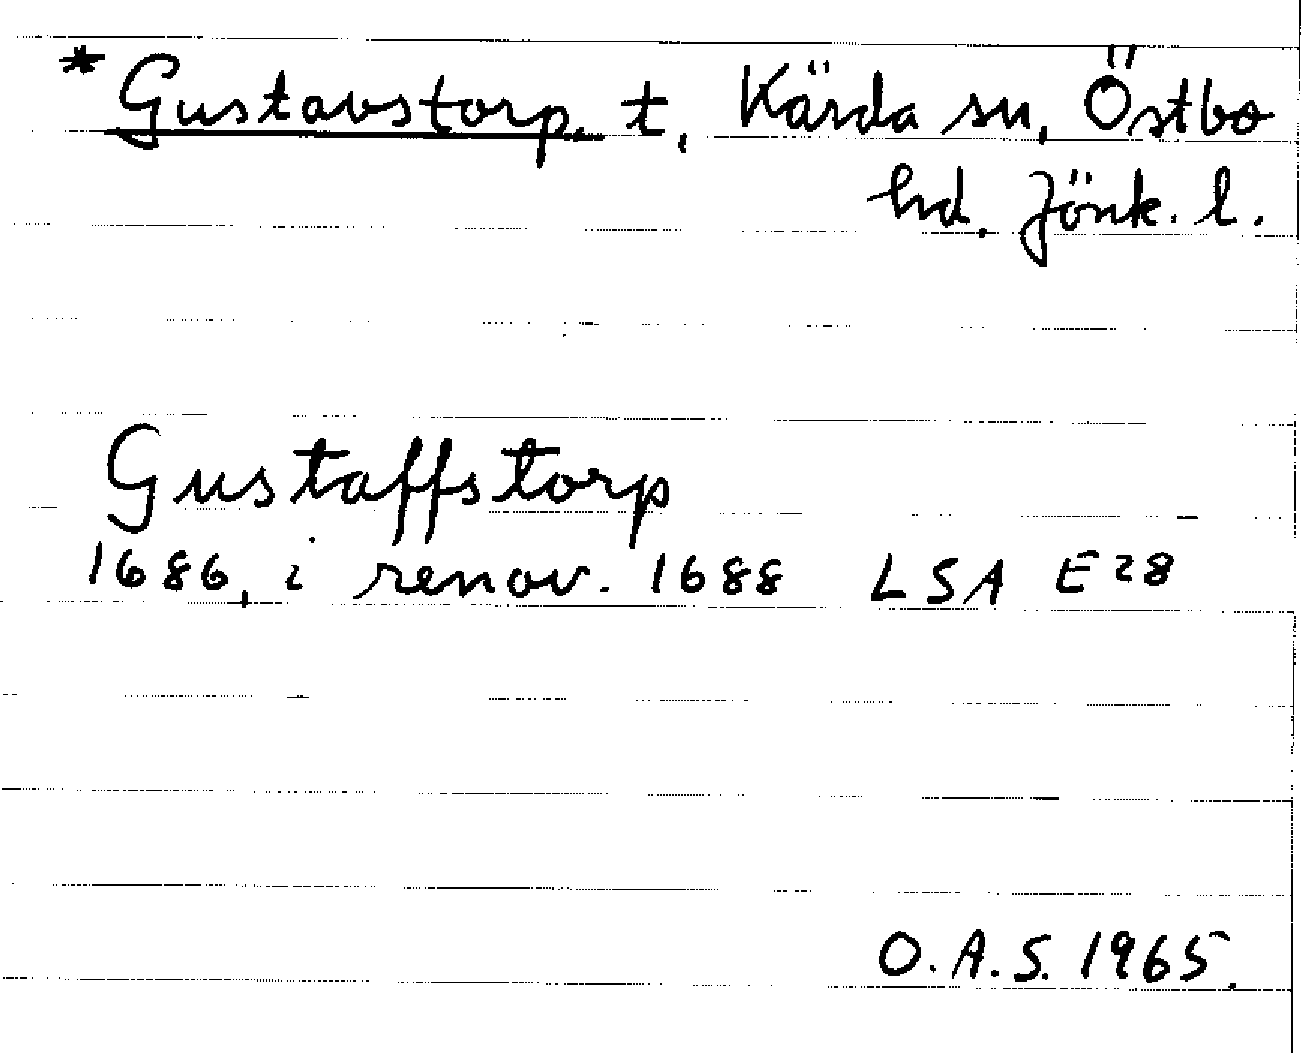 * Gustavstorp, t, Kärda sn, Östbo
hd. Jönk. l.
Gustaffstorp
1686, i renov. 1688 LSA E28
O.A.S. 1965.